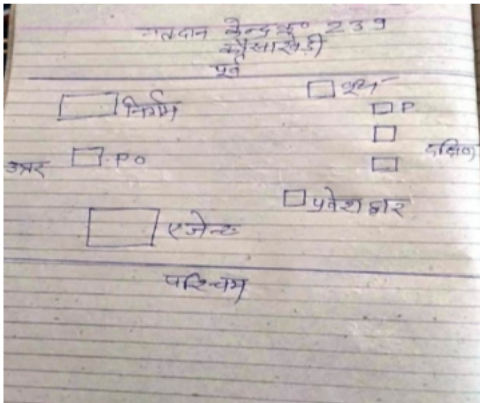 मतदान केन्द्र क्र० 239
भैंसाखेडी
पूर्व
निर्गम
बूथ
P
उत्तर
P0
दक्षिण
प्रवेश द्वार
एजेन्ट
पश्चिम